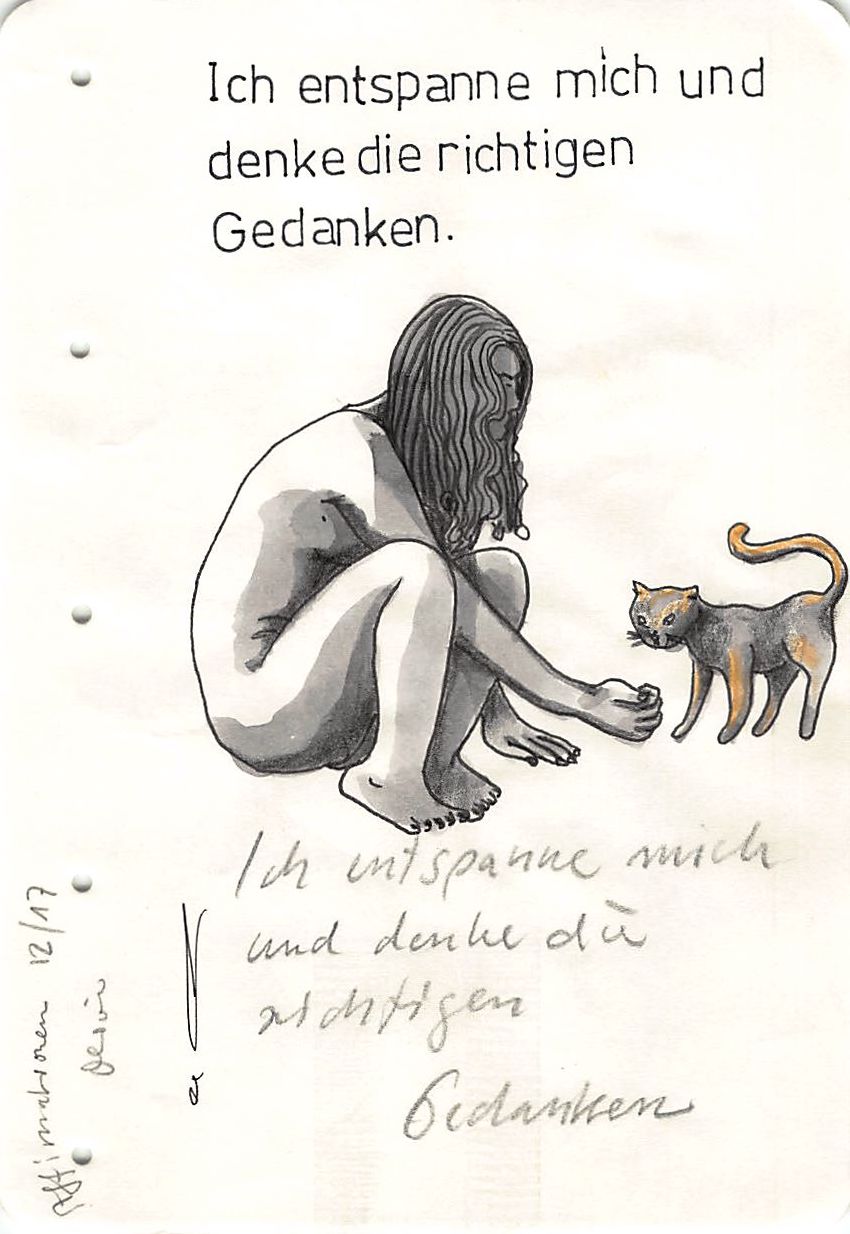 Ich entspanne mich und
denke die richtigen
Gedanken.
Ich entspanne mich
und denke die
richtigen
Gedanken
Affirmationen 12/17